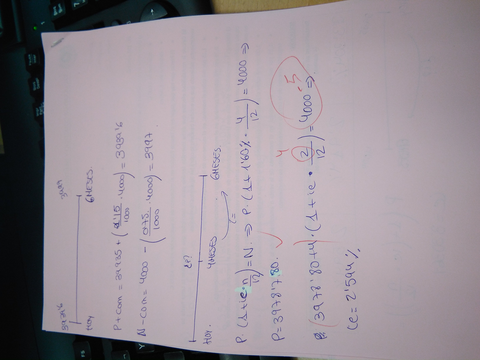 3939'6 3997
Hoy 6 MESES.
P + com = 3939'5 + (0'15/1000 · 4000) = 3939'6
N - com = 4000 - (0'75/1000 · 4000) = 3997
Hoy. 4 MESES 6 MESES.
P · (1 + i · n/12) = N ⇒ P · (1 + 1'60% · 4/12) = 4000 ⇒
P = 3978'7,80.
4
(3978'80 + 4) · (1 + ie · 2/12) = 4000 - 5 ⇒
ie = 2'594%